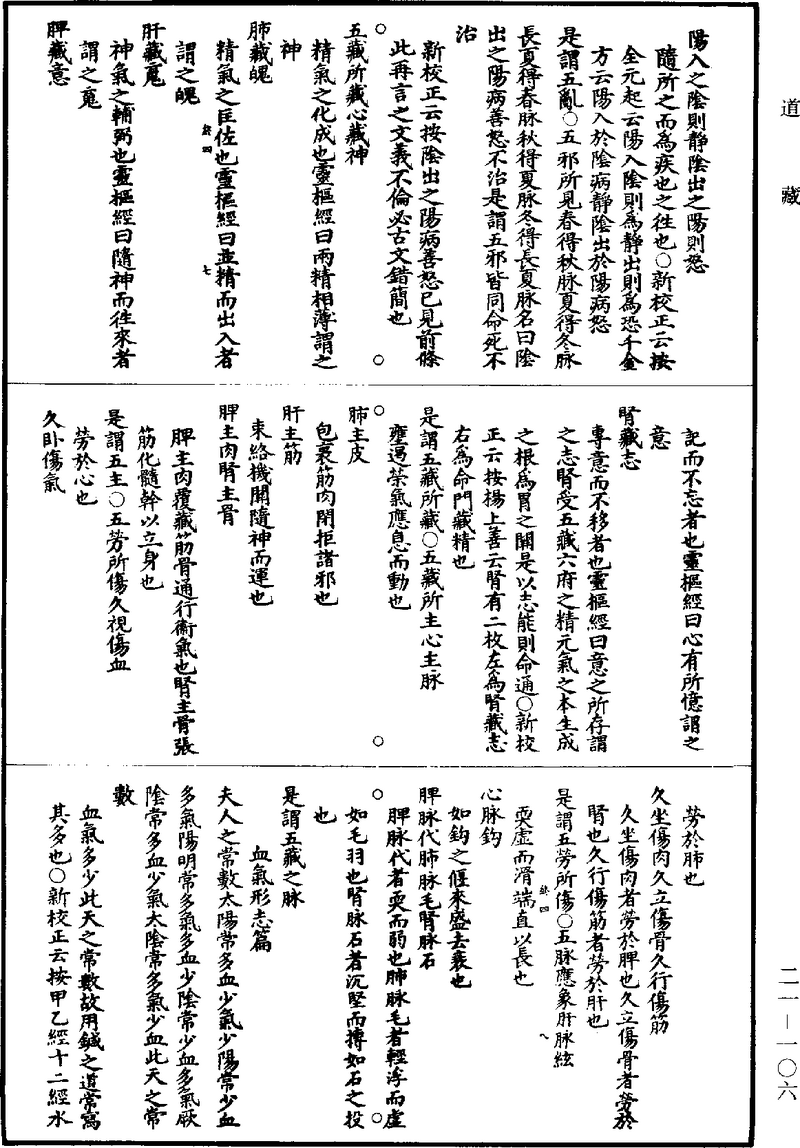 道藏
陽入之陰則靜陰出之陽則怒
隨所之而為疾也之往也○新校正云按
全元起云陽入陰則為靜出則為恐千金
方云陽入於陰病靜陰出於陽病怒
是謂五亂○五邪所見春得秋脉夏得冬脉
長夏得春脉秋得夏脉冬得長夏脉名曰陰
出之陽病善怒不治是謂五邪皆同命死不
治
新校正云按陰出之陽病善怒已見前條
此再言之文義不倫必古文錯簡也
五藏所藏心藏神
精氣之化成也靈樞經曰兩精相薄謂之
神
肺藏魄
精氣之匡佐也靈樞經曰並精而出入者
謂之魄
終四 七
肝藏䰟
神氣之輔弼也靈樞經曰隨神而往來者
謂之䰟
脾藏意
記而不忘者也靈樞經曰心有所憶謂之
意
腎藏志
專意而不移者也靈樞經曰意之所存謂
之志腎受五藏六府之精元氣之本生成
之根為胃之關是以志能則命通○新校
正云按楊上善云腎有二枚左為腎藏志
右為命門藏精也
是謂五藏所藏○五藏所主心主脉
壅遏榮氣應息而動也
肺主皮
包裹筋肉閉拒諸邪也
肝主筋
束絡機關隨神而運也
脾主肉腎主骨
脾主肉覆藏筋骨通行衛氣也腎主骨張
筋化髓幹以立身也
是謂五主○五勞所傷久視傷血
勞於心也
久臥傷氣
勞於肺也
久坐傷肉久立傷骨久行傷筋
久坐傷肉者勞於脾也久立傷骨者勞於
腎也久行傷筋者勞於肝也
是謂五勞所傷○五脉應象肝脉絃
耎虛而滑端直以長也
終四 八
心脉鈎
如鈎之偃來盛去衰也
脾脉代肺脉毛腎脉石
脾脉代者耎而弱也肺脉毛者輕浮而虛
如毛羽也腎脉石者沉堅而搏如石之投
也
是謂五藏之脉
血氣形志篇
夫人之常數太陽常多血少氣少陽常少血
多氣陽明常多氣多血少陰常少血多氣厥
陰常多血少氣太陰常多氣少血此天之常
數
血氣多少此天之常數故用鍼之道常寫
其多也○新校正云按甲乙經十二經水
二一－一〇六